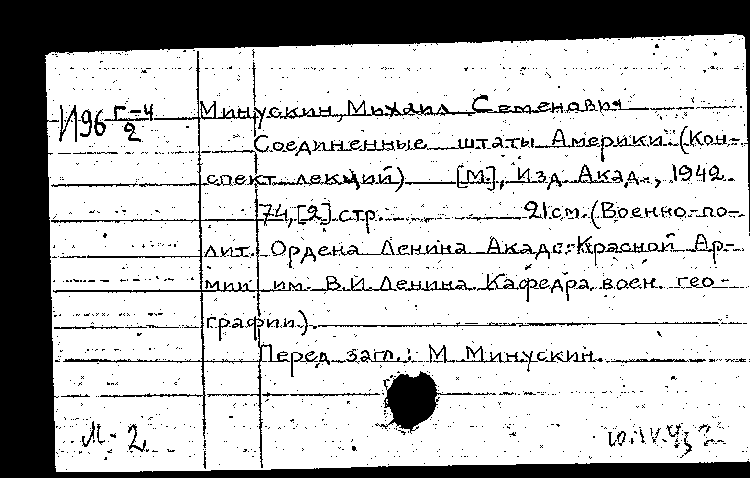 И96 Г-4/2
Минускин, Михаил Семенович
Соединенные штаты Америки. (Кон-
спект лекций) [М.], Изд. Акад., 1942.
74, [2] стр. 21 см. (Военно-по-
лит. Ордена Ленина Акад. Красной Ар-
мии им. В.И. Ленина. Кафедра воен. гео-
графии).
Перед загл.: М. Минускин.
М-2